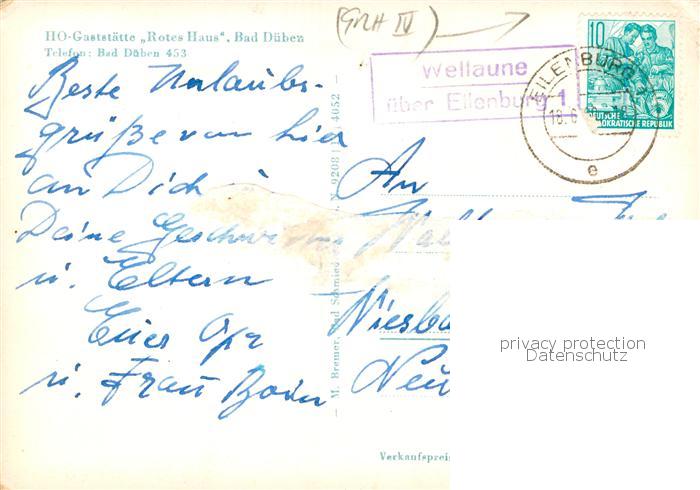 HO-Gaststätte „Rotes Haus“, Bad Düben
Telefon: Bad Düben 453
Wellaune
über Eilenburg 1
EILENBURG
18. 6
e
10
DEUTSCHE
DEMOKRATISCHE REPUBLIK
Beste Urlaubs-
grüße von hier
an Dich
Deine
u. Eltern
Euer Opa
u. Frau
M. Bremer, Bad Schmied
N 9208
4052
An
Wiesba
Neu
Verkaufspreis
privacy protection
Datenschutz